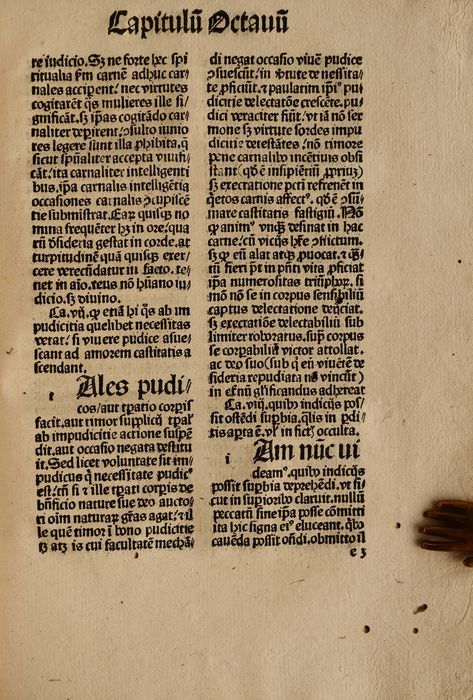 Capitulū Octauū
re iudicio. Sz ne forte hec spi
ritualia ẜm carnē adhuc car⸗
nales acciperent/ nec virtutes
cogitarēt qs mulieres ille si⸗
gnificāt. sz ip̄as cogitādo car⸗
naliter depirent: ꝯsulto iunio
res legere sunt illa ꝓhibita, q̄
sicut sp̄ualiter accepta viuifi⸗
cāt/ ita carnaliter intelligenti
bus, ip̄a carnalis intelligētia
occasiones carnalis ꝯcupiscē
tie subministrat. Eaꝝ quisqꝫ no
mina frequēter hz in ore, qua
rū dſideria gestat in corde. at
turpitudinē quā quisqꝫ exer⸗
cere verecūdatur iu facto. te⸗
net in aīo. teus nō hūano iu⸗
dicio. sz diuino.
Ca. vij. ꝙ etiā hi qs ab im
pudicitia quelibet necessitas
vetat/ si viuere pudice assue⸗
scant ad amorem castitatis a
scendant.
Ales pudi⸗
cos/ aut tpatio corpis
facit. aut timor supplicij tpal̓
ab impudicitie actione suspē
dit. aut occasio negata destitu
it. Sed licet voluntate sit im⸗
pudicus q̄ necessitate pudicꝰ
est: tn̄ si z ille tpati corpis de
bn̄ficio nature sue deo aucto⸗
ri oīm naturaꝝ gr̄as agat/ z il
le quē timor ī bono pudicitie
tz atqꝫ is cui facultatē mechā⸗
di negat occasio viuē pudice
ꝯsuescūt/ in ꝟtute de necessita⸗
te ꝓficiūt. z paulatim ip̄iꝰ pu⸗
dicitie delectatōe crescēte. pu⸗
dici veraciter fiūt. vt iā nō ser
mone sz virtute sordes impu
dicitie detestātes. nō timore
pene carnalibꝰ incētiuis obsi
stant (qd̄ ē insipiētiū ꝓpriū)
sz execratione pcti refrenēt in
q̄etos carnis affectꝰ. qd̄ ē ꝯsū⸗
mare castitatis fastigiū. Nō
ꝙ animꝰ vnqꝫ desinat in hac
carne/ cū vicijs hr̄e ꝯflictum.
sz ꝙ eū alat atqꝫ ꝓuocat. z qs⸗
tū fieri pt in pn̄ti vita ꝓficiat
ip̄a numerositas triūphoꝝ. si
mō nō se in corpus sensibiliū
captus delectatione deijciat.
sz execratiōe delectabiliū sub
limiter roboratus. sup̄ corpus
se corpabiliū victor attollat.
ac deo suo (sub q̄ eū viuere de
sideria repudiata nō vincūt)
in eternū glificandus adhereat
Ca. viij. quibꝰ indicijs pos⸗
sit ostēdi supbia. q̄lis in pdi⸗
tis apta ē. vl̓ in fictꝭ occulta.
Am nūc ui
deamꝰ. quibꝰ indicijs
possit supbia dephēdi. vt si⸗
cut in supioribꝰ claruit. nullū
peccatū sine ip̄a posse cōmitti
ita hic signa eiꝰ eluceant. qbꝰ
cauēda possit on̄di. obmitto il
e 3